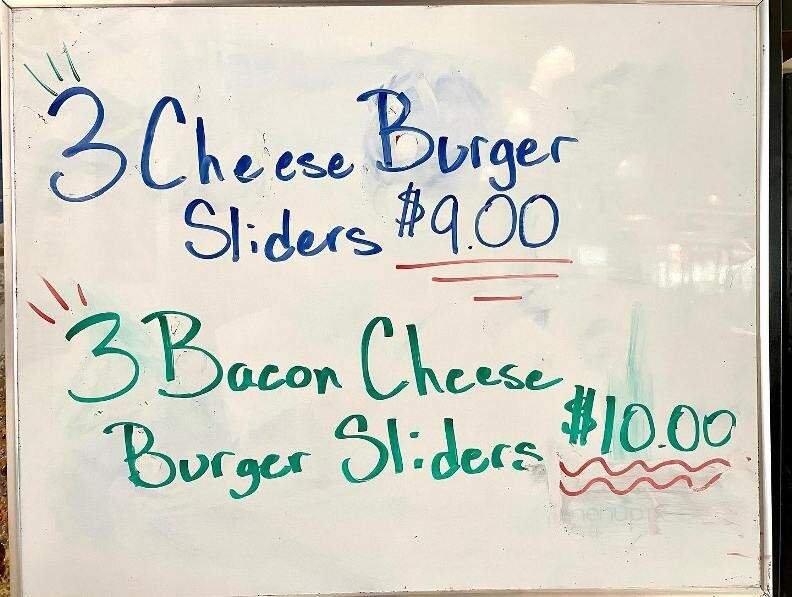 3 Cheese Burger
Sliders $9.00
3 Bacon Cheese
Burger Sliders $10.00